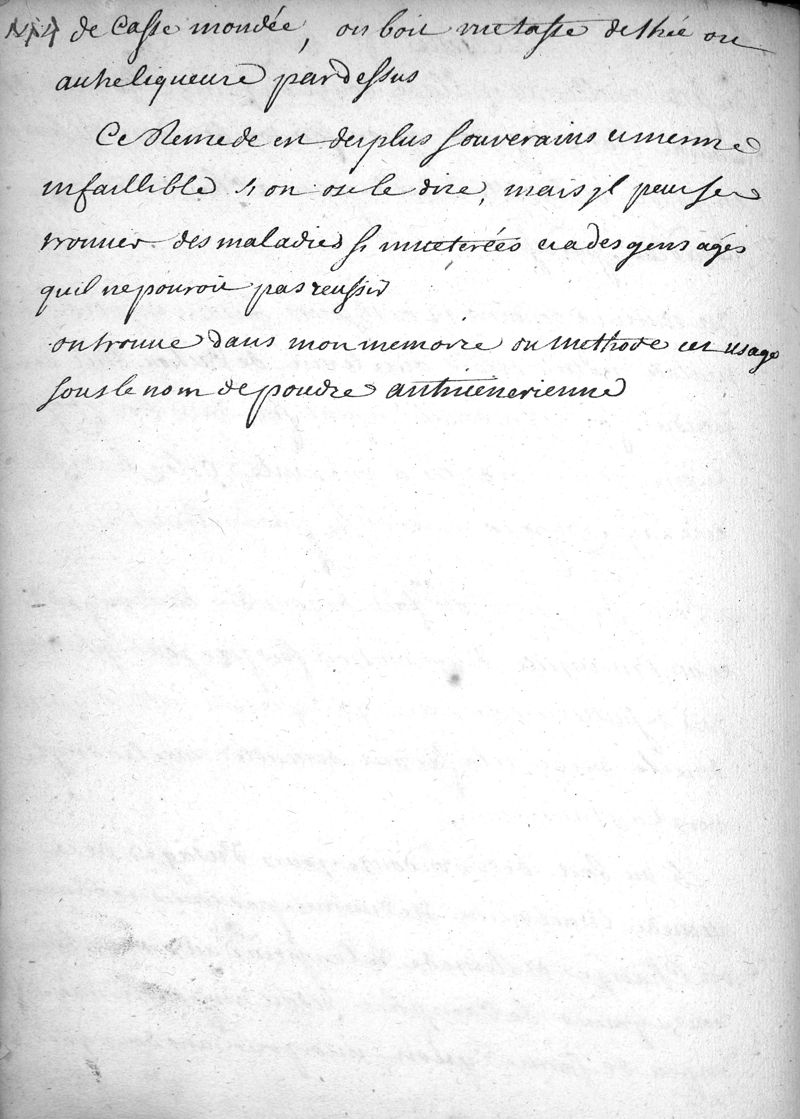 de Casse mondée, on boit une tasse de thée ou
autre liqueure par dessus
Ce Remede est des plus souverains et meme
infaillible si on ose le dire, mais jl peut se
trouver des maladies si inveterées et a des gens agés
quil ne pouroit pas reussir
on trouve dans mon memoire ou methode cet usage
sous le nom de poudre antivenerienne